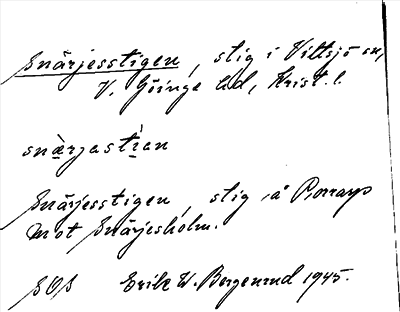 Snärjesstigen, stig i Vittsjö sn,
V. Göinge hd, Krist. l.
snærjastían
Snärjesstigen, stig å Porrarp
mot Snärjesholm.
SOS Erik W. Bergenrud 1945.